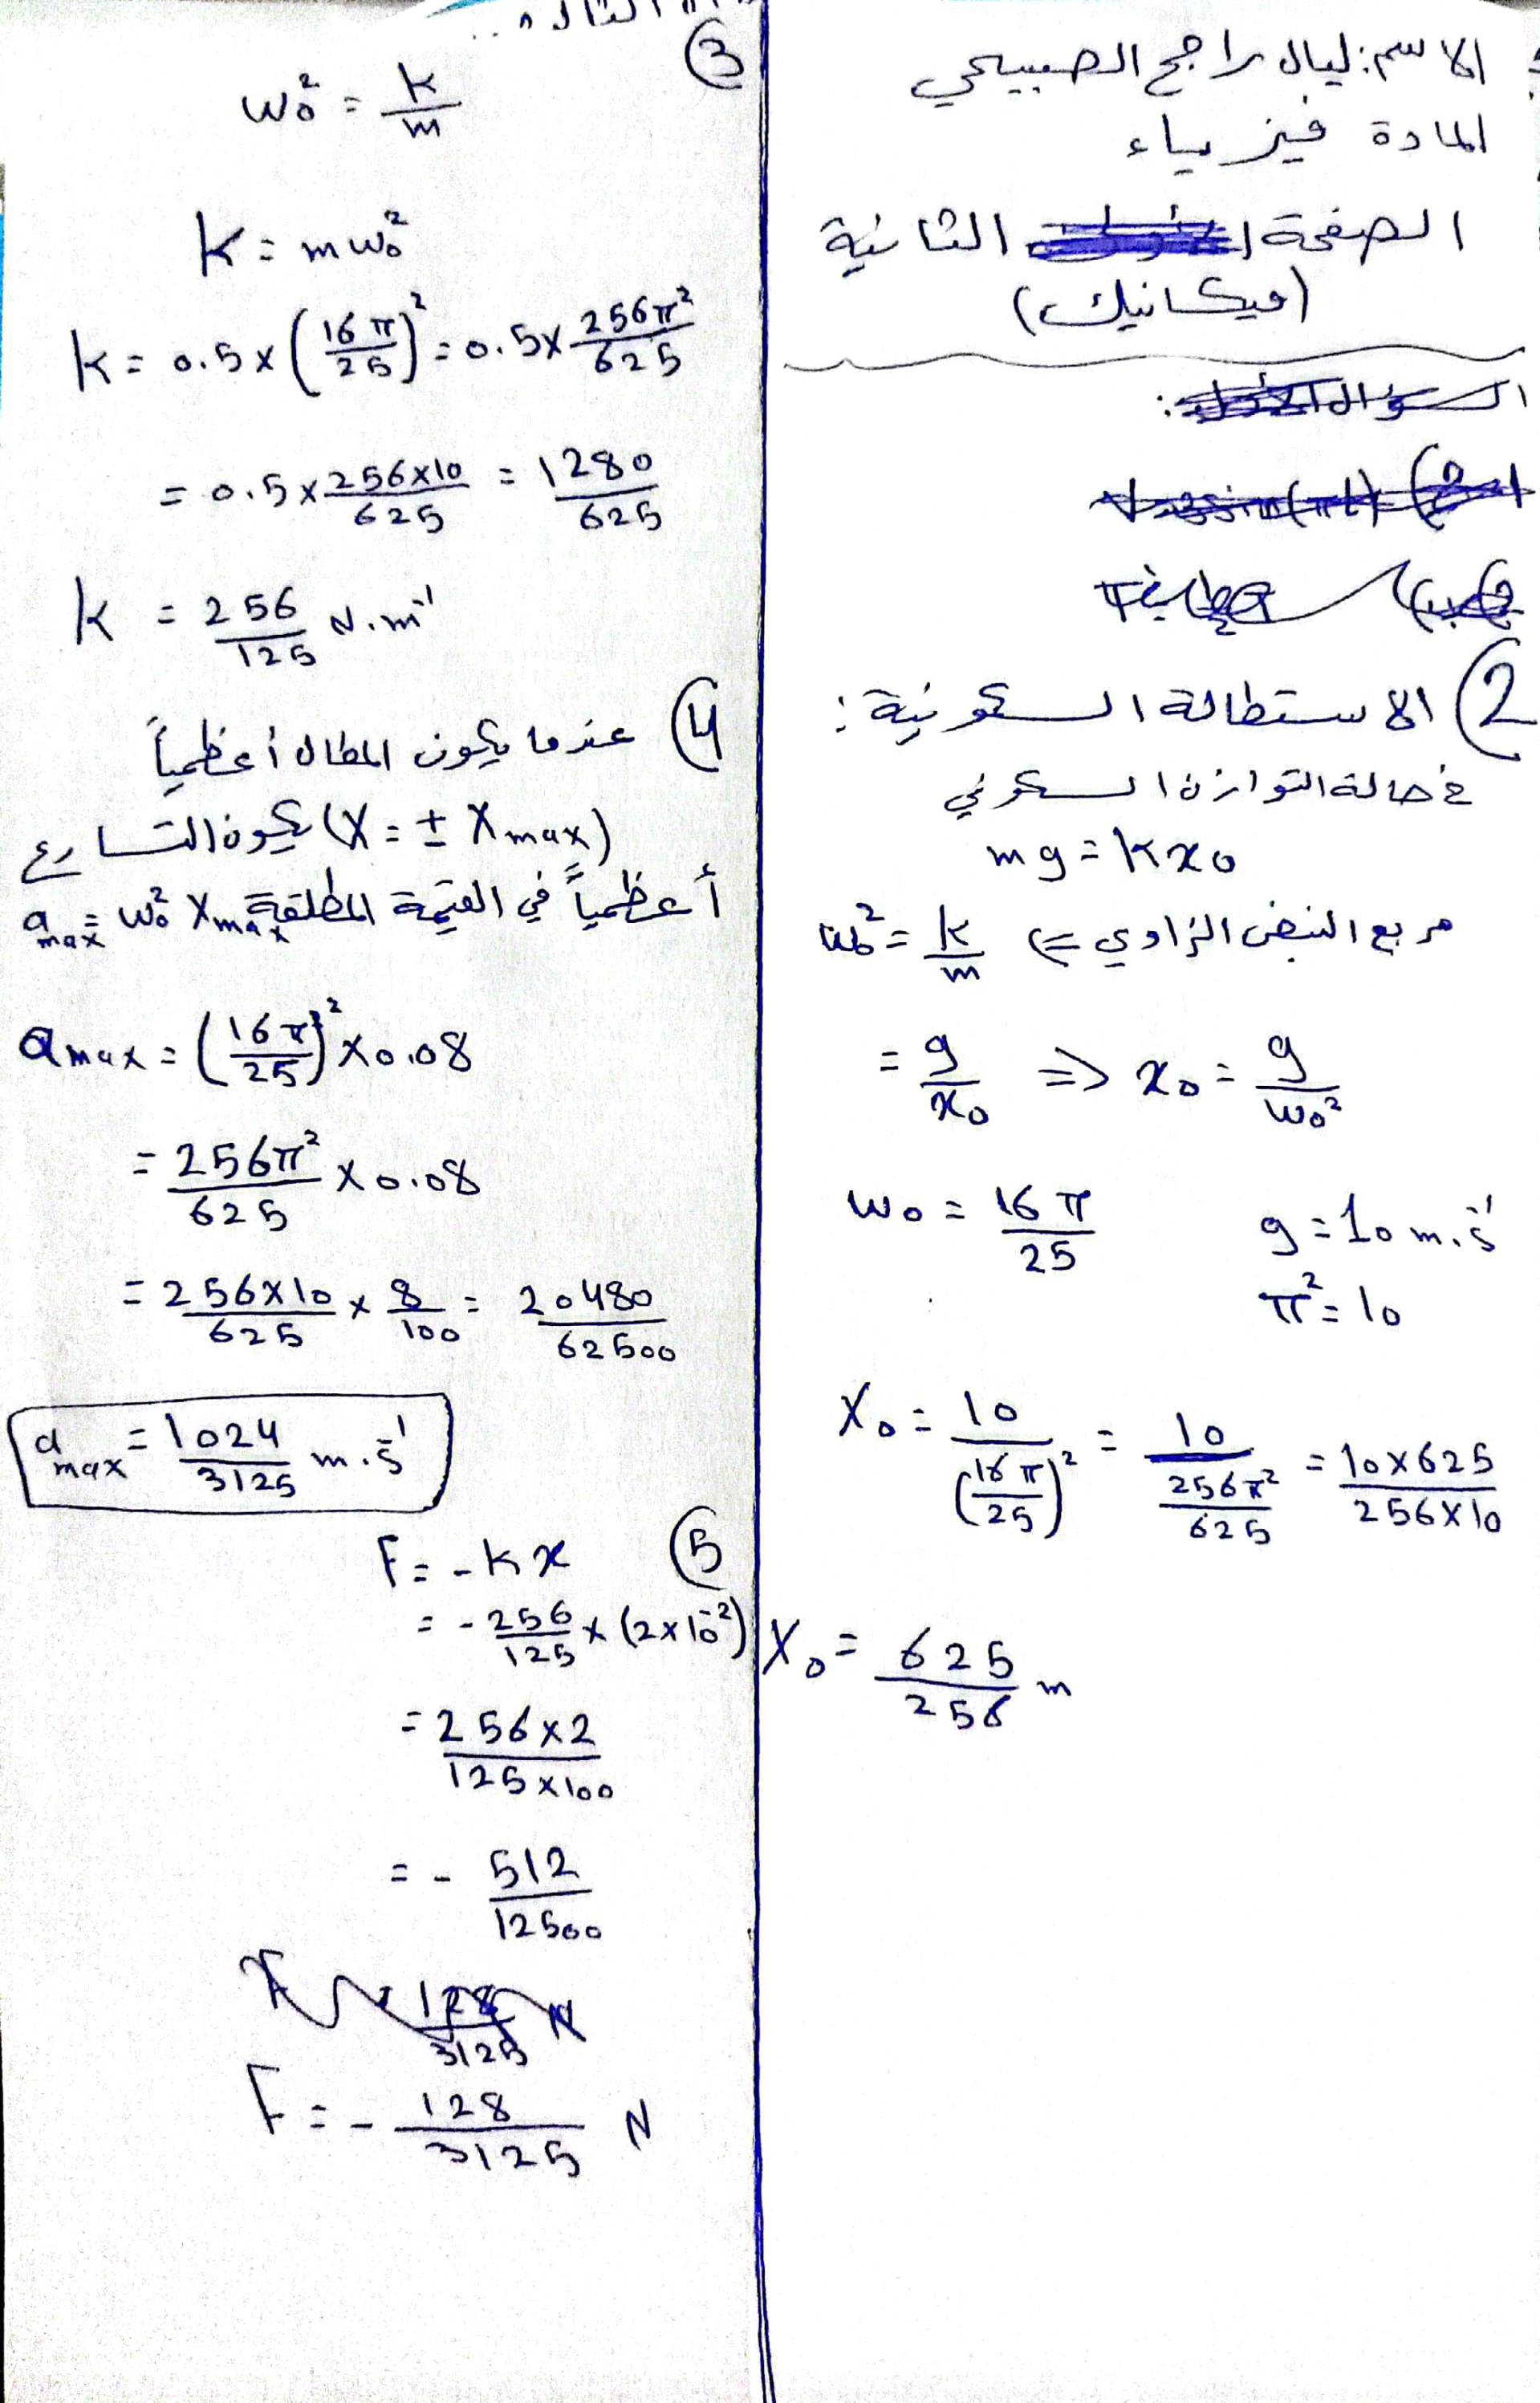 الاسم: ليال راجح الصبيحي
المادة فيزياء
الصفحة الثانية
(ميكانيك)
2) الاستطالة السكونية:
في حالة التوازن السكوني
mg = kx₀
مربع النبض الزاوي ⇐ ω₀² = k/m
= g/x₀ ⇒ x₀ = g/ω₀²
ω₀ = 16π/25 g = 10 m.s⁻¹
π² = 10
X₀ = 10/(16π/25)² = 10/(256π²/625) = 10×625/256×10
X₀ = 625/256 m
3
ω₀² = k/m
k = mω₀²
k = 0.5 × (16π/25)² = 0.5 × 256π²/625
= 0.5 × 256×10/625 = 1280/625
k = 256/125 N.m⁻¹
4) عندما يكون المطال أعظمياً
(X = ± Xmax) يكون التسارع
أعظمياً في القيمة المطلقة amax = ω₀² Xmax
amax = (16π/25)² × 0.08
= 256π²/625 × 0.08
= 256×10/625 × 8/100 = 20480/62500
amax = 1024/3125 m.s⁻¹
5 F = -kx
= - 256/125 × (2×10⁻²)
= 256×2/125×100
= - 512/12500
F = - 128/3125 N